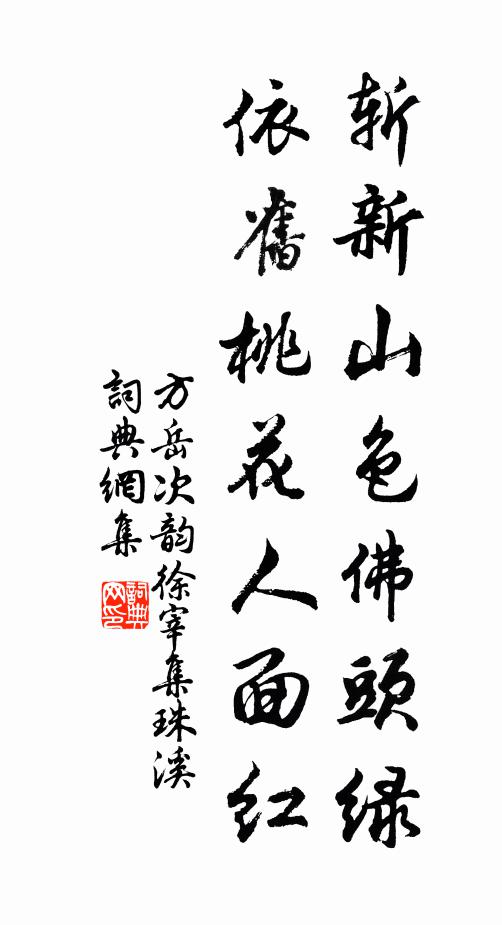 斩新山色佛頭緑
依舊桃花人面红
方岳次韵徐宰集珠溪
詞典網集
詞典网印